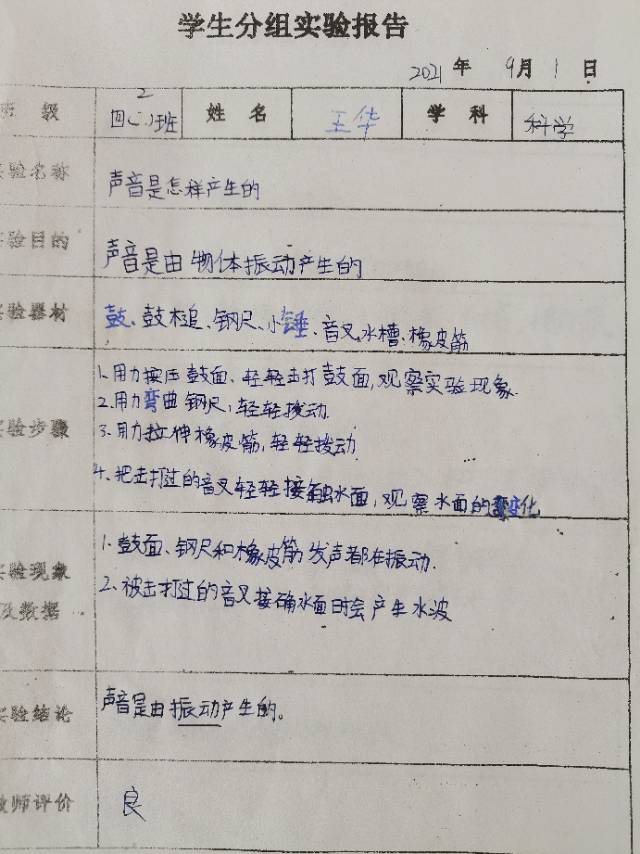 学生分组实验报告
2021 年 9月 1 日
班 级 四(2)班 姓 名 王华 学 科 科学
实验名称 声音是怎样产生的
实验目的 声音是由物体振动产生的
实验器材 鼓、鼓槌、钢尺、小锤、音叉、水槽、橡皮筋
1.用力按压鼓面、轻轻击打鼓面,观察实验现象.
2.用力弯曲钢尺,轻轻拨动.
实验步骤
3.用力拉伸橡皮筋,轻轻拨动
4.把击打过的音叉轻轻接触水面,观察水面的变化
1.鼓面、钢尺和橡皮筋发声都在振动.
实验现象
2.被击打过的音叉接确水面时会产生水波
及数据
实验结论 声音是由振动产生的。
教师评价 良